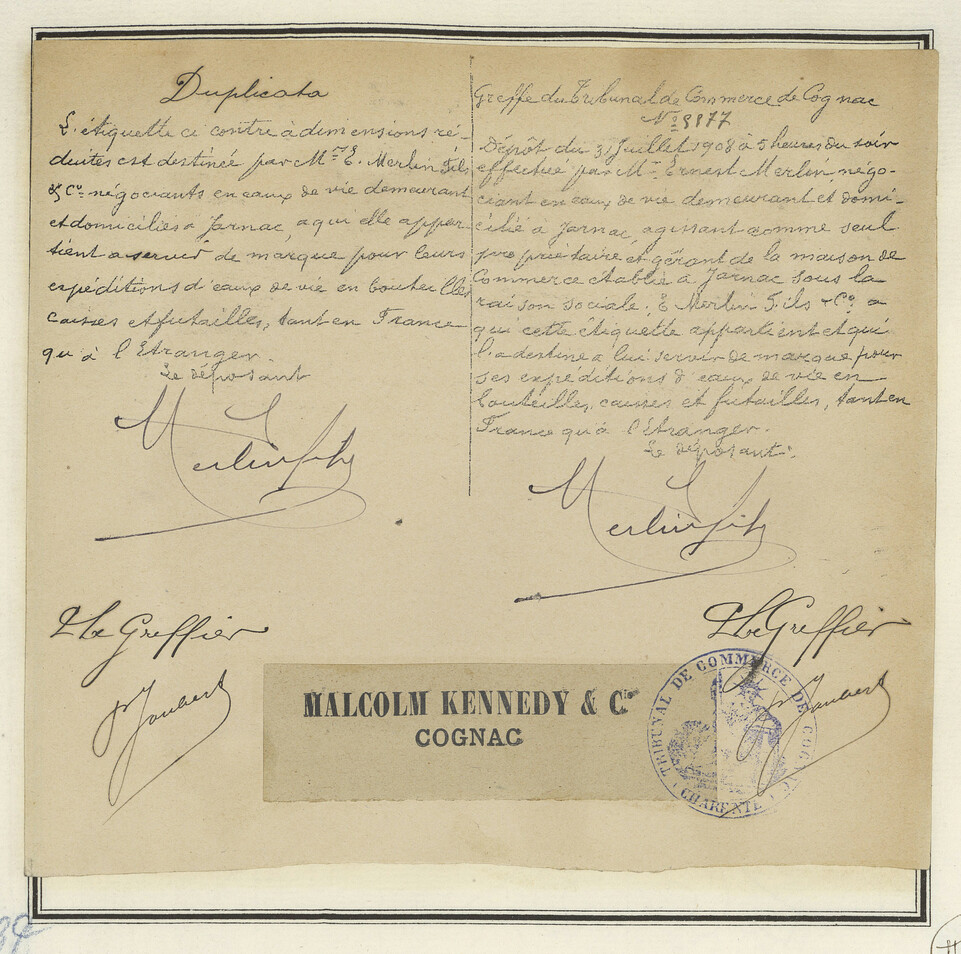 Duplicata
L'étiquette ci contre à dimensions ré-
duites est destinée par Mrs E. Merlin Fils
& Co négociants en eaux de vie demeurant
et domiciliés à Jarnac, a qui elle appar-
tient a servir de marque pour leurs
expéditions d'eaux de vie en bouteilles
caisses et futailles, tant en France
qu'à l'Etranger.
Le déposant
Merlin fils
Le Greffier
Joubert
Greffe du Tribunal de Commerce de Cognac
No 9877
Dépôt du 31 Juillet 1908 à 5 heures du soir
effectué par Mr Ernest Merlin négo-
ciant en eaux de vie demeurant et domi-
cilié à Jarnac, agissant comme seul
propriétaire et gérant de la maison de
Commerce établie à Jarnac sous la
raison sociale: E Merlin Fils & Co a
qui cette étiquette appartient et qui
l'a destine a lui servir de marque pour
ses expéditions d'eaux de vie en
bouteilles, caisses et futailles, tant en
France qu'à l'Etranger.
Le déposant:
Merlin fils
Le Greffier
Joubert
MALCOLM KENNEDY & Co
COGNAC
TRIBUNAL DE COMMERCE DE COGNAC
CHARENTE